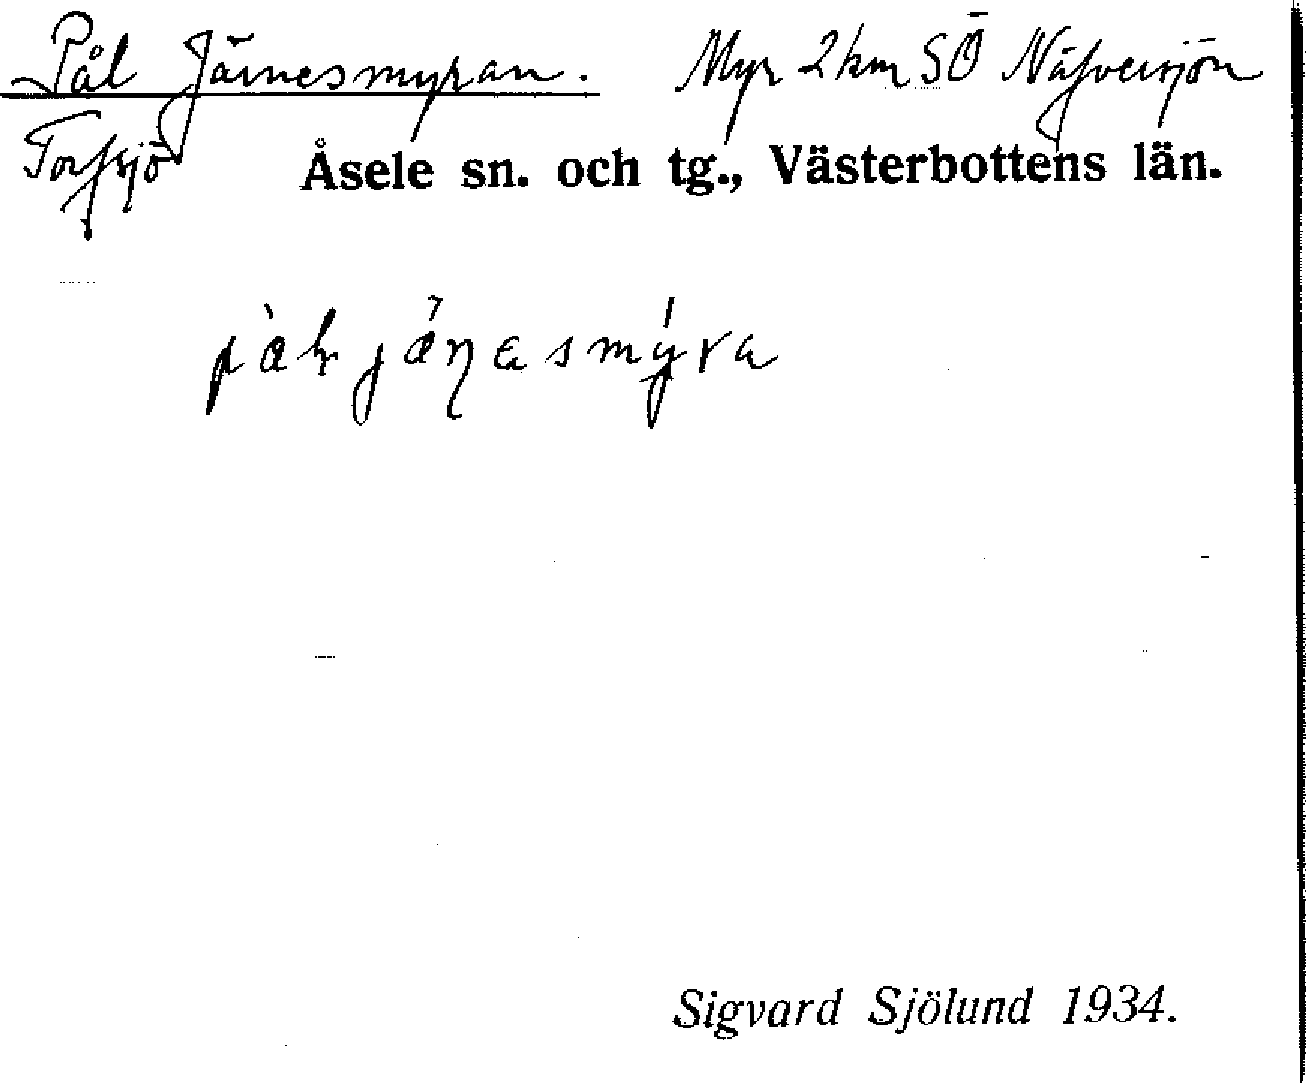 Pål Järnesmyran. Myr 2 km SÖ Näfversjön
Torfsjö
Åsele sn. och tg., Västerbottens län.
Sigvard Sjölund 1934.